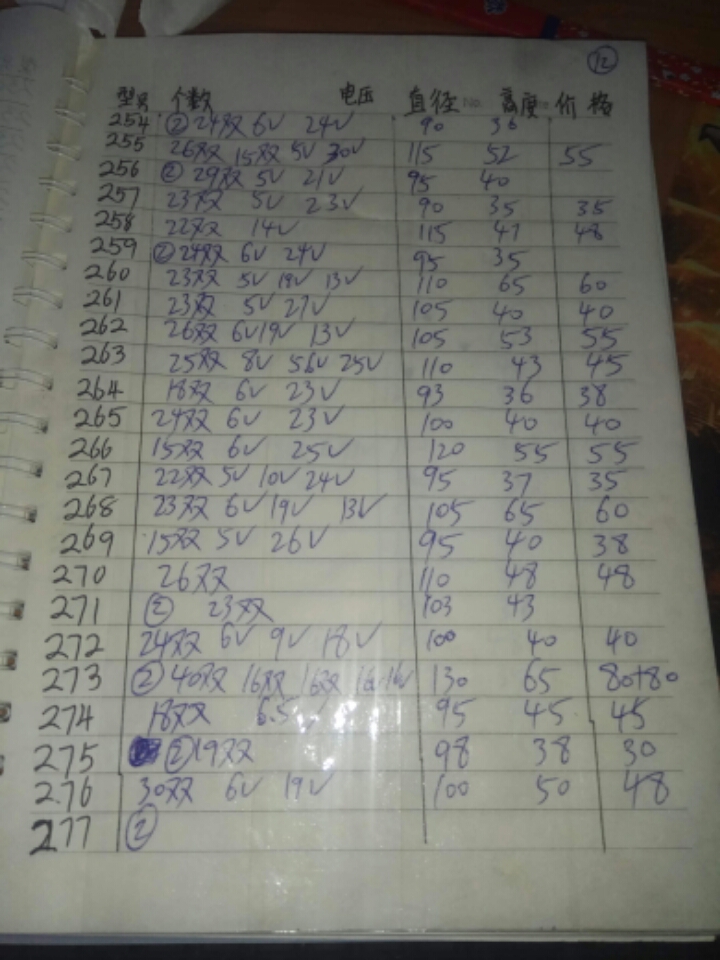 ⑫
型号 个数 电压 直径 高度 价格
254 ② 24双双 6V 24V 90 36
255 26双双 15双双 5V 30V 115 52 55
256 ② 29双双 5V 21V 95 40
257 23双双 5V 23V 90 35 35
258 22双双 14V 115 47 48
259 ② 24双双 6V 24V 95 35
260 23双双 5V 19V 13V 110 65 60
261 23双双 5V 27V 105 40 40
262 26双双 6V 19V 13V 105 53 55
263 25双双 8V 56V 25V 110 43 45
264 18双双 6V 23V 93 36 38
265 24双双 6V 23V 100 40 40
266 15双双 6V 25V 120 55 55
267 22双双 5V 10V 24V 95 37 35
268 23双双 6V 19V 13V 105 65 60
269 15双双 5V 26V 95 40 38
270 26双双 110 48 48
271 ② 23双双 103 43
272 24双双 6V 9V 18V 100 40 40
273 ② 40双双 16双双 16双双 130 65 80+80
274 18双双 6.5V 95 45 45
275 ② 19双双 98 38 30
276 30双双 6V 19V 100 50 48
277 ②